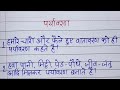 पर्यावरण
1 हमारे चारों ओर फैले हुए वातावरण को ही
पर्यावरण कहते हैं।
हवा, पानी, मिट्टी, पेड़-पौधे, जीव-जन्तु
आदि मिलकर पर्यावरण बनाते हैं।